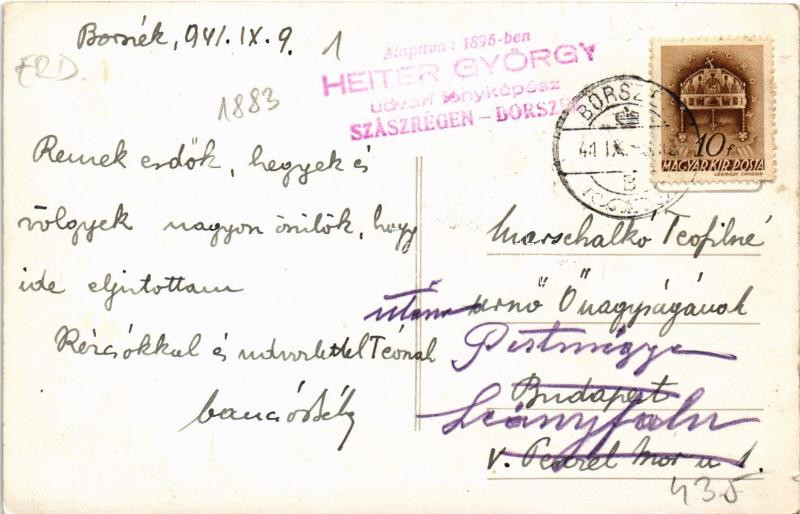 Borszék, 941. IX. 9.
1
ERD.
1883
Alapítva: 1895-ben
HEITER GYÖRGY
udvari fényképész
SZÁSZRÉGEN – BORSZÉK
BORSZÉK
41 IX.
B
10 f
MAGYAR KIR. POSTA
LÉGRÁDY SÁNDOR
Remek erdők, hegyek és
völgyek nagyon örülök, hogy
ide eljutottam
Kézcsókkal és üdvözlettel Teónak
Marschalkó Teofilné
utána úrnő Őnagyságának
Pestmegye
Budapest
Leányfalu
V. Perczel Mór u 1.
435